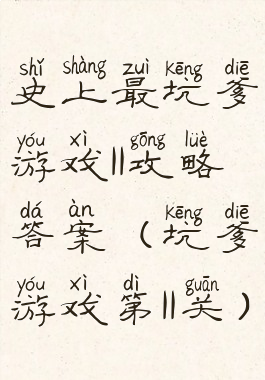 shǐ shàng zuì kēng diē
史上最坑爹
yóu xì gōng lüè
游戏11攻略
dá àn kēng diē
答案（坑爹
yóu xì dì guān
游戏第11关）